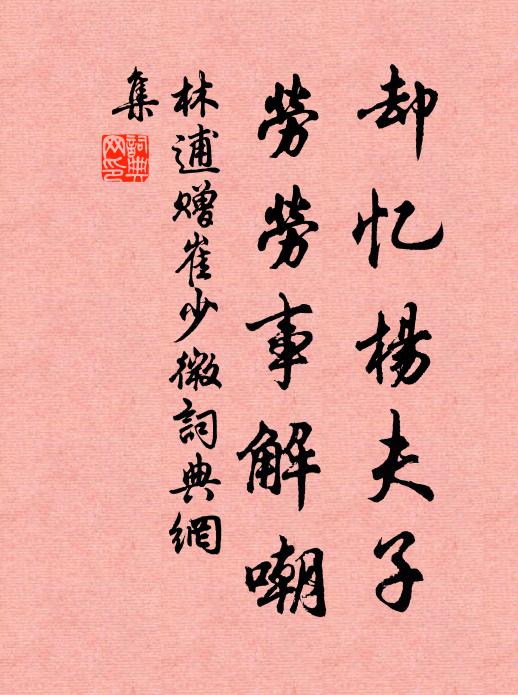 却忆楊夫子
勞勞事解嘲
林逋赠崔少微詞典網
集
詞典
网印